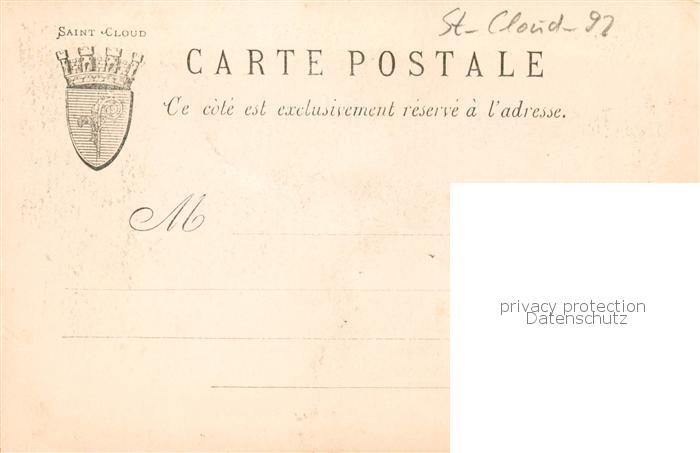 St-Cloud-92
SAINT-CLOUD
CARTE POSTALE
Ce côté est exclusivement réservé à l'adresse.
M
privacy protection
Datenschutz